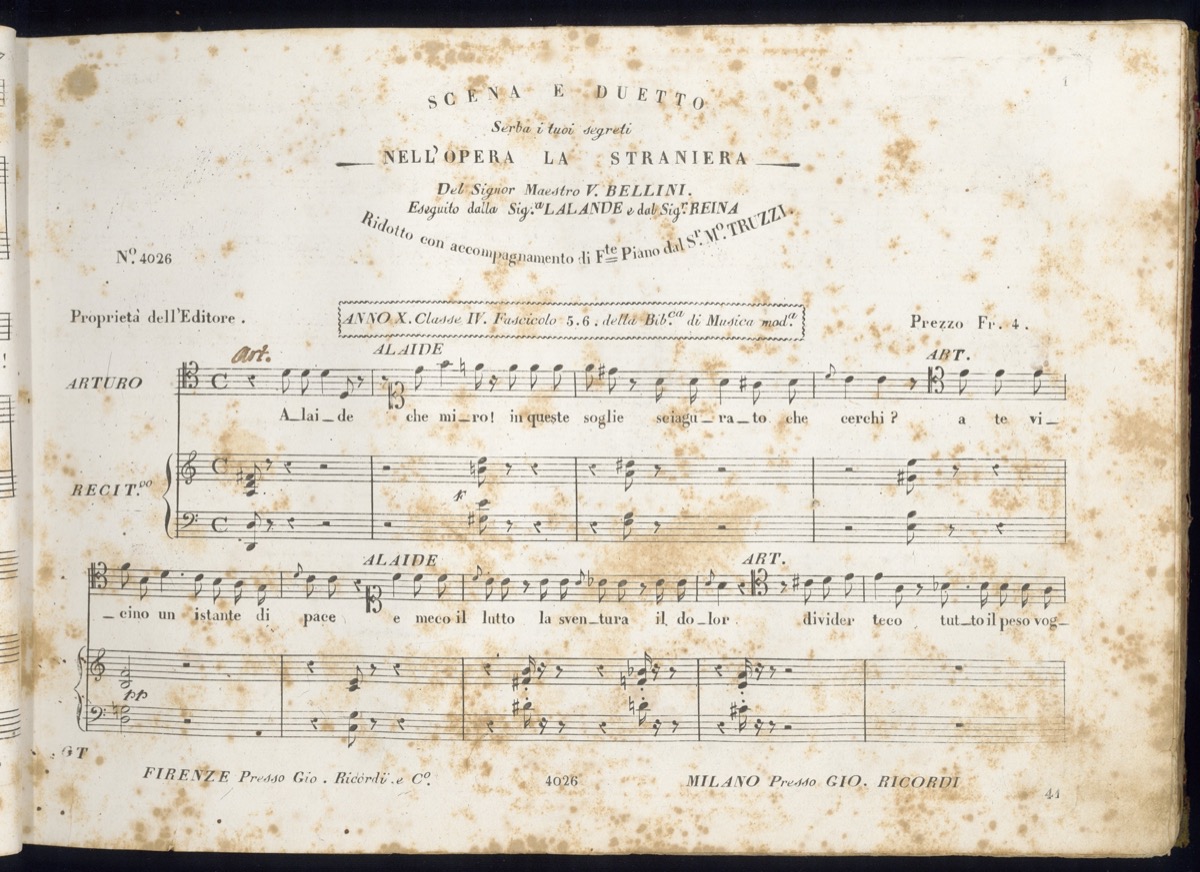 1
SCENA E DUETTO
Serba i tuoi segreti
NELL'OPERA LA STRANIERA
Del Signor Maestro V. BELLINI.
Eseguito dalla Sig.ª LALANDE e dal Sig.r REINA
Ridotto con accompagnamento di F.te Piano dal S.r M.o TRUZZI.
N.o 4026
Proprietà dell'Editore.
ANNO X. Classe IV. Fascicolo 5.6. della Bib.ca di Musica mod.a
Prezzo Fr. 4.
Art.
ALAIDE
ART.
ARTURO
A_lai_de che mi_ro! in queste soglie sciagu_ra_to che cerchi? a te vi_
RECIT.vo
p
ALAIDE
ART.
_cino un istante di pace e meco il lutto la sven_tura il do_lor. divider teco tut_to il peso vog_
pp
GT
FIRENZE Presso Gio. Ricordi e C.o
4026
MILANO Presso GIO. RICORDI
41